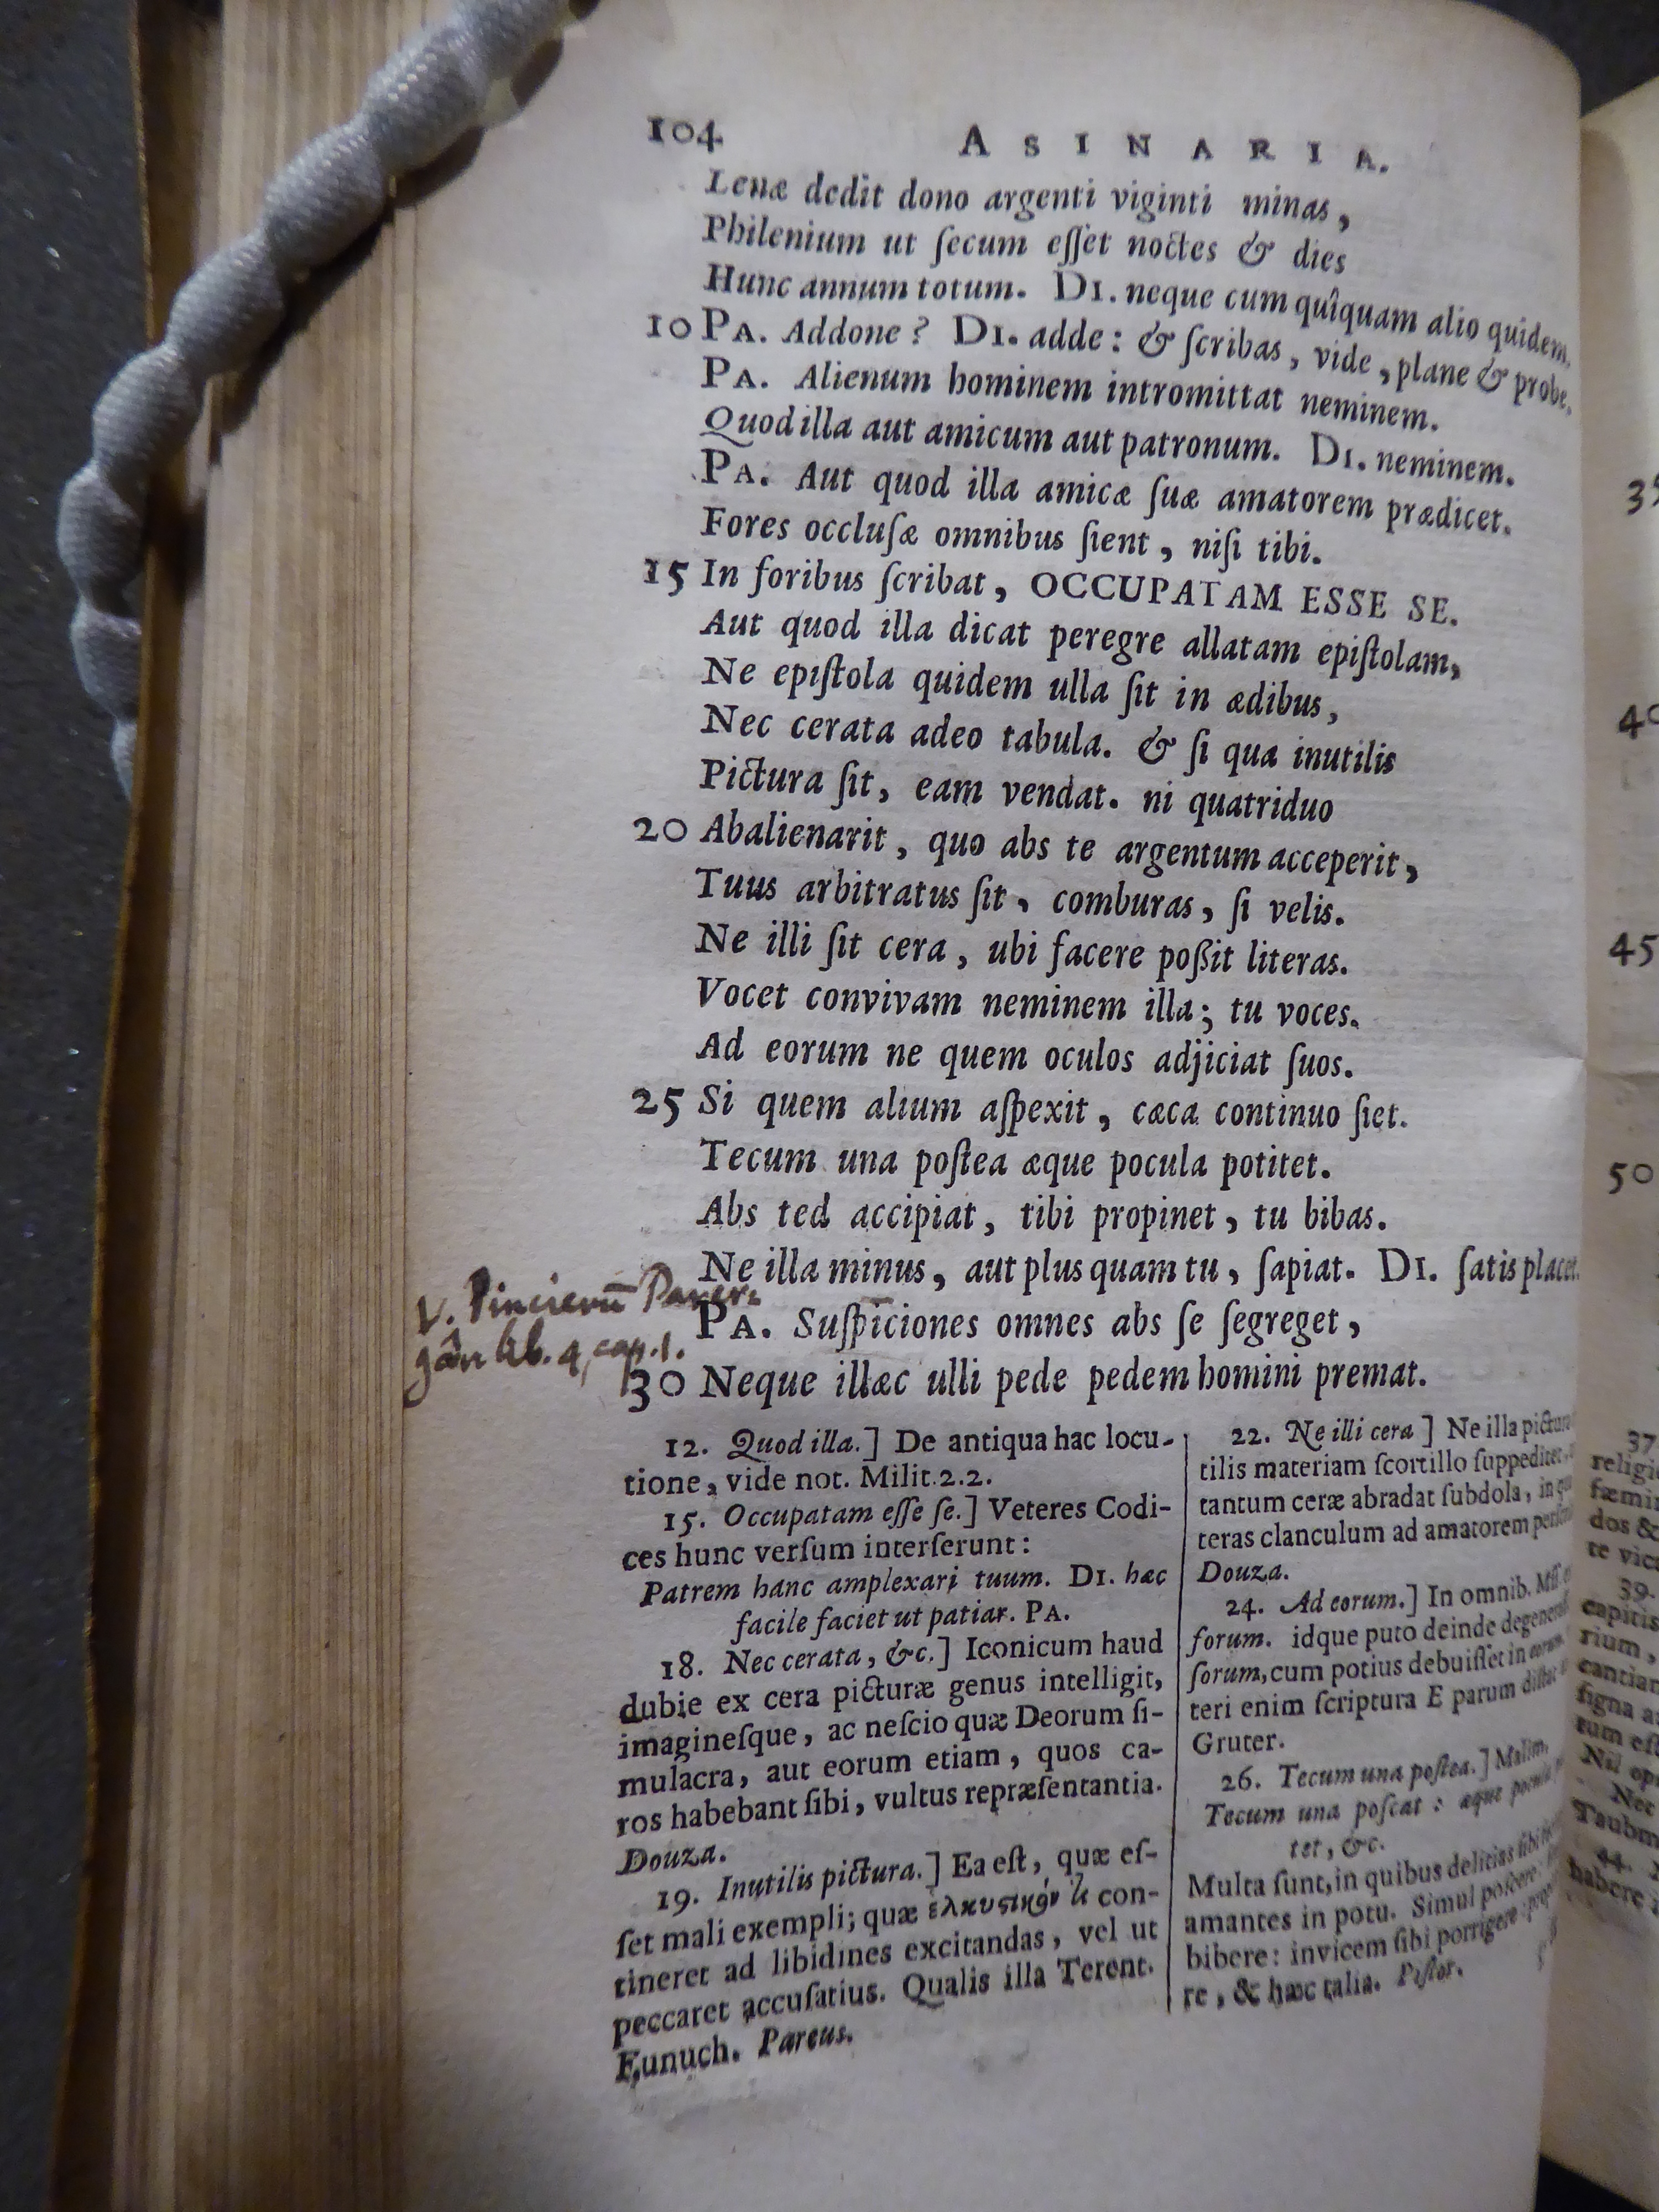 104 ASINARIA.
Lenæ dedit dono argenti viginti minas,
Philenium ut ſecum eſſet noctes & dies
Hunc annum totum. DI. neque cum quîquam alio quidem.
10 PA. Addone? DI. adde: & ſcribas, vide, plane & probe.
PA. Alienum hominem intromittat neminem.
Quod illa aut amicum aut patronum. DI. neminem.
PA. Aut quod illa amicæ ſuæ amatorem prædicet.
Fores occluſæ omnibus ſient, niſi tibi.
15 In foribus ſcribat, OCCUPATAM ESSE SE.
Aut quod illa dicat peregre allatam epiſtolam,
Ne epiſtola quidem ulla ſit in ædibus,
Nec cerata adeo tabula. & ſi qua inutilis
Pictura ſit, eam vendat. ni quatriduo
20 Abalienarit, quo abs te argentum acceperit,
Tuus arbitratus ſit, comburas, ſi velis.
Ne illi ſit cera, ubi facere poßit literas.
Vocet convivam neminem illa; tu voces.
Ad eorum ne quem oculos adjiciat ſuos.
25 Si quem alium aſpexit, cæca continuo ſiet.
Tecum una poſtea æque pocula potitet.
Abs ted accipiat, tibi propinet, tu bibas.
Ne illa minus, aut plus quam tu, ſapiat. DI. ſatis placet.
PA. Suſpiciones omnes abs ſe ſegreget,
30 Neque illæc ulli pede pedem homini premat.
V. Pincierū Parer.
gân lib. 4, cap. 1.
12. Quod illa.] De antiqua hac locu-
tione, vide not. Milit. 2.2.
15. Occupatam eſſe ſe.] Veteres Codi-
ces hunc verſum interſerunt:
Patrem hanc amplexari tuum. DI. hæc
facile faciet ut patiar. PA.
18. Nec cerata, &c.] Iconicum haud
dubie ex cera picturæ genus intelligit,
imagineſque, ac neſcio quæ Deorum ſi-
mulacra, aut eorum etiam, quos ca-
ros habebant ſibi, vultus repræſentantia.
Douza.
19. Inutilis pictura.] Ea eſt, quæ eſ-
ſet mali exempli; quæ ἑλκυστικόν τι con-
tineret ad libidines excitandas, vel ut
peccaret accuſatius. Qualis illa Terent.
Eunuch. Pareus.
22. Ne illi cera] Ne illa pictura
tilis materiam ſcortillo ſuppeditet,
tantum ceræ abradat ſubdola, in
teras clanculum ad amatorem
Douza.
24. Ad eorum.] In omnib. Mſſ.
forum. idque puto deinde
ſorum, cum potius debuiſſet in eorum
teri enim ſcriptura E parum diſtat
Gruter.
26. Tecum una poſtea.] Malim,
Tecum una poſcat: æque pocula
tet, &c.
Multa ſunt, in quibus delitias ſibi
amantes in potu. Simul poſcere:
bibere: invicem ſibi porrigere:
re, & hæc talia. Piſtor.
40
45
50
37
religi
fæmi
dos &
te vic
39.
capitis
rium,
cantian
ſigna a
tum eſt
Nil op
Nec
Taubm
44.
habere